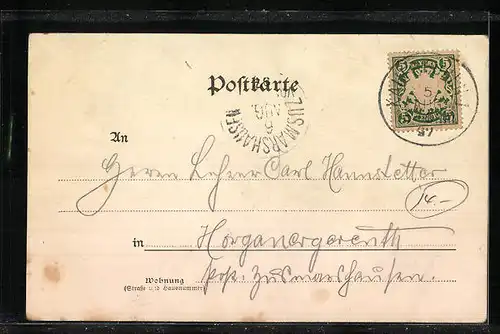 Postkarte
5 5
5 5
ZUSMARSHAUSEN
6
AUG.
5
An
Herrn Lehrer Carl Hannstetter
14.-
in Horganergereuth
Wohnung
(Straße und Hausnummer)
Post. Zusmarshausen.